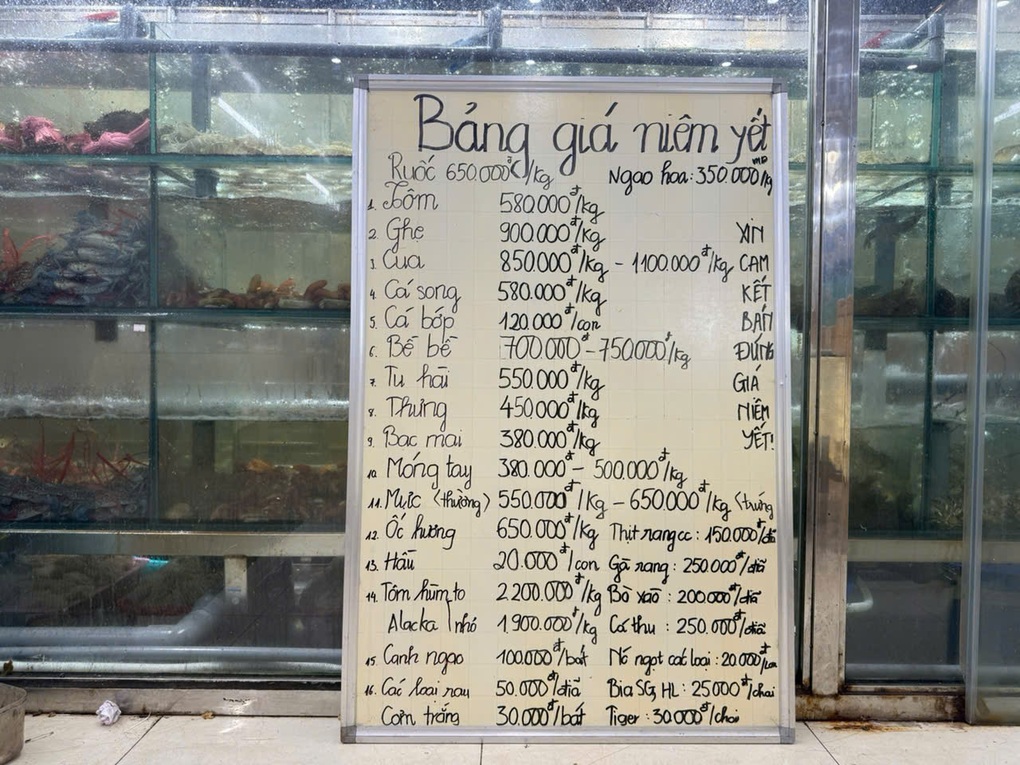 Bảng giá niêm yết
Ruốc 650.000đ/kg Ngao hoa: 350.000/kg
1. Tôm 580.000đ/kg
2. Ghẹ 900.000đ/kg XIN
3. Cua 850.000đ/kg - 1100.000đ/kg CAM
4. Cá song 580.000đ/kg KẾT
5. Cá bóp 120.000đ/con BÁN
6. Bề bề 700.000đ - 750.000đ/kg ĐÚNG
7. Tu hài 550.000đ/kg GIÁ
8. Thưng 450.000đ/kg NIÊM
9. Bạc mai 380.000đ/kg YẾT!
10. Móng tay 380.000đ - 500.000đ/kg
11. Mực (thường) 550.000đ/kg - 650.000đ/kg (trứng
12. Ốc hương 650.000đ/kg Thịt rang cc: 150.000đ/đĩ
13. Hầu 20.000đ/con Gà rang: 250.000đ/đĩa
14. Tôm hùm to 2.200.000đ/kg Bò xào: 200.000đ/đĩa
Alacka nhỏ 1.900.000đ/kg Cá thu: 250.000đ/đĩa
15. Canh ngao 100.000đ/bát Nó ngọt các loại: 20.000đ/
16. Các loại rau 50.000đ/đĩa Bia SG, HL: 25000đ/chai
Cơm trắng 30.000đ/bát Tiger: 30.000đ/chai